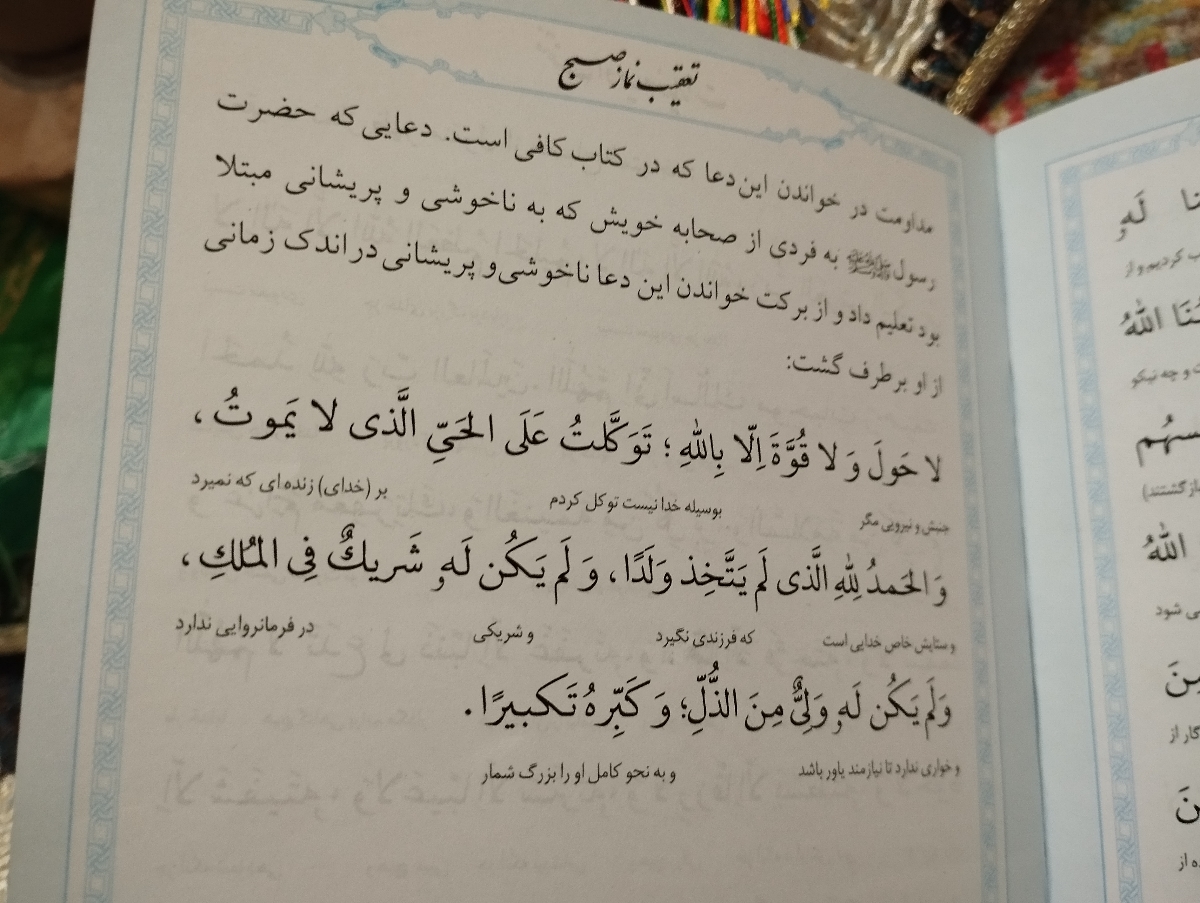 تعقیب نماز صبح
مداومت در خواندن این دعا که در کتاب کافی است. دعایی که حضرت
رسول ﷺ به فردی از صحابه خویش که به ناخوشی و پریشانی مبتلا
بود تعلیم داد و از برکت خواندن این دعا ناخوشی و پریشانی در اندک زمانی
از او برطرف گشت:
لا حَولَ وَ لا قُوَّةَ اِلّا بِاللهِ؛ تَوَكَّلتُ عَلَى الحَیِّ الَّذی لا یَموتُ،
جنبش و نیرویی مگر بوسیله خدا نیست توکل کردم بر (خدای) زنده ای که نمیرد
وَ الحَمدُ لِلهِ الَّذی لَم یَتَّخِذ وَلَدًا، وَ لَم یَكُن لَهو شَریكٌ فِی المُلكِ،
و ستایش خاص خدایی است که فرزندی نگیرد و شریکی در فرمانروایی ندارد
وَلَم یَكُن لَهو وَلِیٌّ مِنَ الذُّلِّ؛ وَ كَبِّرهُ تَكبیرًا.
و خواری ندارد تا نیازمند یاور باشد و به نحو کامل او را بزرگ شمار
نا لَهو
ب کردیم و از
اللهُ
ت و چه نیکو
سهُم
بازگشتند)
اللهُ
می شود
مِنَ
گار از